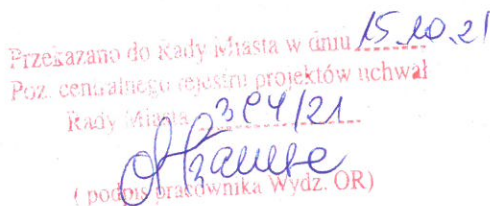 Przekazano do Rady Miasta w dniu 15.10.21
Poz. centralnego rejestru projektów uchwał
Rady Miasta 304/21
( podpis pracownika Wydz. OR)